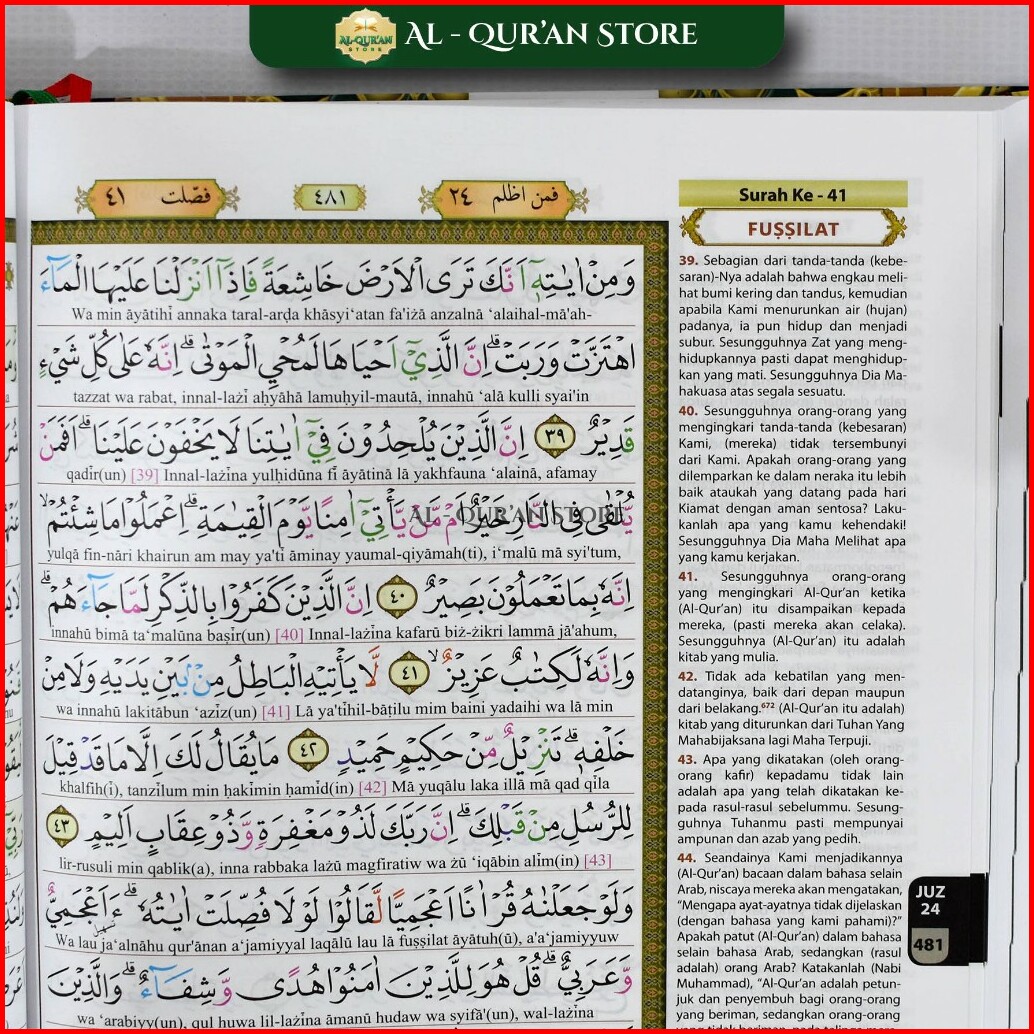 AL-QUR'AN STORE
AL - QUR'AN STORE
فصّلت ٤١
٤٨١
فمن اظلم ٢٤
وَمِنْ اٰيٰتِهٖٓ اَنَّكَ تَرَى الْاَرْضَ خَاشِعَةً فَاِذَآ اَنْزَلْنَا عَلَيْهَا الْمَاۤءَ
Wa min āyātihī annaka taral-arḍa khāsyi‘atan fa'iżā anzalnā ‘alaihal-mā'ah-
اهْتَزَّتْ وَرَبَتْۗ اِنَّ الَّذِيْٓ اَحْيَاهَا لَمُحْيِ الْمَوْتٰىۗ اِنَّهٗ عَلٰى كُلِّ شَيْءٍ
tazzat wa rabat, innal-lażī aḥyāhā lamuḥyil-mautā, innahū ‘alā kulli syai'in
قَدِيْرٌ ٣٩ اِنَّ الَّذِيْنَ يُلْحِدُوْنَ فِيْٓ اٰيٰتِنَا لَا يَخْفَوْنَ عَلَيْنَاۗ اَفَمَنْ
qadīr(un) [39] Innal-lażīna yulḥidūna fī āyātinā lā yakhfauna ‘alainā, afamay
يُّلْقٰى فِى النَّارِ خَيْرٌ اَمْ مَّنْ يَّأْتِيْٓ اٰمِنًا يَّوْمَ الْقِيٰمَةِۗ اِعْمَلُوْا مَا شِئْتُمْ ۙ
AL - QUR'AN STORE
yulqā fin-nāri khairun am may ya'tī āminay yaumal-qiyāmah(ti), i‘malū mā syi'tum,
اِنَّهٗ بِمَا تَعْمَلُوْنَ بَصِيْرٌ ٤٠ اِنَّ الَّذِيْنَ كَفَرُوْا بِالذِّكْرِ لَمَّا جَاۤءَهُمْۗ
innahū bimā ta‘malūna baṣīr(un) [40] Innal-lażīna kafarū biż-żikri lammā jā'ahum,
وَاِنَّهٗ لَكِتٰبٌ عَزِيْزٌ ۙ ٤١ لَّا يَأْتِيْهِ الْبَاطِلُ مِنْۢ بَيْنِ يَدَيْهِ وَلَا مِنْ
wa innahū lakitābun ‘azīz(un) [41] Lā ya'tīhil-bāṭilu mim baini yadaihi wa lā min
خَلْفِهٖۗ تَنْزِيْلٌ مِّنْ حَكِيْمٍ حَمِيْدٍ ٤٢ مَا يُقَالُ لَكَ اِلَّا مَا قَدْ قِيْلَ
khalfih(ī), tanzīlum min ḥakīmin ḥamīd(in) [42] Mā yuqālu laka illā mā qad qīla
لِلرُّسُلِ مِنْ قَبْلِكَۗ اِنَّ رَبَّكَ لَذُوْ مَغْفِرَةٍ وَّذُوْ عِقَابٍ اَلِيْمٍ ٤٣
lir-rusuli min qablik(a), inna rabbaka lażū magfiratiw wa żū ‘iqābin alīm(in) [43]
وَلَوْ جَعَلْنٰهُ قُرْاٰنًا اَعْجَمِيًّا لَّقَالُوْا لَوْلَا فُصِّلَتْ اٰيٰتُهٗۗ ءَاَعْجَمِيٌّ
Wa lau ja‘alnāhu qur'ānan a‘jamiyyal laqālū lau lā fuṣṣilat āyātuh(ū), a'a‘jamiyyuw
وَّعَرَبِيٌّۗ قُلْ هُوَ لِلَّذِيْنَ اٰمَنُوْا هُدًى وَّشِفَاۤءٌۗ وَالَّذِيْنَ
wa ‘arabiyy(un), qul huwa lil-lażīna āmanū hudaw wa syifā'(un), wal-lażīna
Surah Ke - 41
FUṢṢILAT
39. Sebagian dari tanda-tanda (kebe-
saran)-Nya adalah bahwa engkau meli-
hat bumi kering dan tandus, kemudian
apabila Kami menurunkan air (hujan)
padanya, ia pun hidup dan menjadi
subur. Sesungguhnya Zat yang meng-
hidupkannya pasti dapat menghidup-
kan yang mati. Sesungguhnya Dia Ma-
hakuasa atas segala sesuatu.
40. Sesungguhnya orang-orang yang
mengingkari tanda-tanda (kebesaran)
Kami, (mereka) tidak tersembunyi
dari Kami. Apakah orang-orang yang
dilemparkan ke dalam neraka itu lebih
baik ataukah yang datang pada hari
Kiamat dengan aman sentosa? Laku-
kanlah apa yang kamu kehendaki!
Sesungguhnya Dia Maha Melihat apa
yang kamu kerjakan.
41. Sesungguhnya orang-orang
yang mengingkari Al-Qur'an ketika
(Al-Qur'an) itu disampaikan kepada
mereka, (pasti mereka akan celaka).
Sesungguhnya (Al-Qur'an) itu adalah
kitab yang mulia.
42. Tidak ada kebatilan yang men-
datanginya, baik dari depan maupun
dari belakang.⁶⁷² (Al-Qur'an itu adalah)
kitab yang diturunkan dari Tuhan Yang
Mahabijaksana lagi Maha Terpuji.
43. Apa yang dikatakan (oleh orang-
orang kafir) kepadamu tidak lain
adalah apa yang telah dikatakan ke-
pada rasul-rasul sebelummu. Sesung-
guhnya Tuhanmu pasti mempunyai
ampunan dan azab yang pedih.
44. Seandainya Kami menjadikannya
(Al-Qur'an) bacaan dalam bahasa selain
Arab, niscaya mereka akan mengatakan,
“Mengapa ayat-ayatnya tidak dijelaskan
(dengan bahasa yang kami pahami)?”
Apakah patut (Al-Qur'an) dalam bahasa
selain bahasa Arab, sedangkan (rasul
adalah) orang Arab? Katakanlah (Nabi
Muhammad), “Al-Qur'an adalah petun-
juk dan penyembuh bagi orang-orang
yang beriman, sedangkan orang-orang
JUZ
24
481